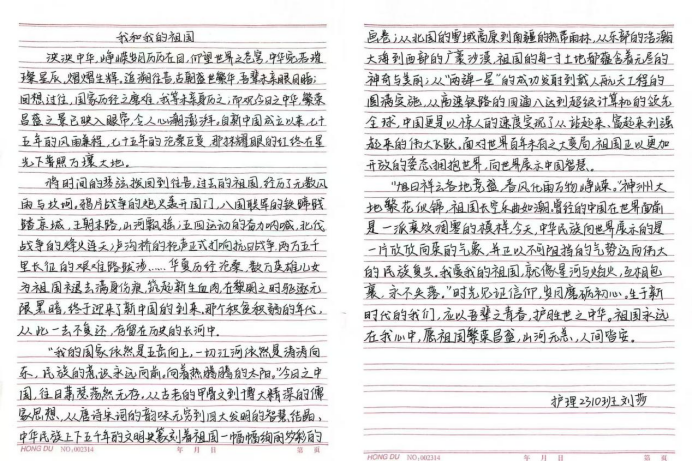 我和我的祖国
泱泱中华，峥嵘岁月历历在目，仰望世界之苍穹，中华宛若璀
璨星辰，熠熠生辉，追溯往昔，古朝盛世繁华，吾辈未亲眼目睹；
回想过往，国家历经之磨难，我等未亲历之；而观今日之中华，繁荣
昌盛之景已映入眼帘，令人心潮澎湃。自新中国成立以来，七十
五年的风雨兼程，七十五年的沧桑巨变，那抹耀眼的红终在星
光下普照万里大地。
将时间的琴弦拨回到往昔，过去的祖国，经历了无数风
雨与坎坷，鸦片战争的炮火轰开国门，八国联军的铁蹄践
踏京城，王朝末路，山河飘摇；五四运动的奋力呐喊，北伐
战争的烽火连天，卢沟桥的枪声正式打响抗日战争，两万五千
里长征的艰难路跋涉……华夏历经沧桑，数万英雄儿女
为祖国褪去满身伤痕，筑起新生血肉，在黎明之时驱逐无
限黑暗，终于迎来了新中国的到来，那个积贫积弱的年代，
从此一去不复还，存留在历史的长河中。
“我的国家依然是五岳向上，一切江河依然是滔滔向
东，民族的意识永远向前，向着热腾腾的太阳。”今日之中
国，往日萧瑟荡然无存，从古老的甲骨文到博大精深的儒
家思想，从唐诗宋词的韵味无穷到四大发明的智慧结晶，
中华民族上下五千年的文明史篆刻着祖国一幅幅绚丽多彩的
HONG DU NO.002314 年 月 日 第 页
画卷；从北国的雪域高原到南疆的热带雨林，从东部的浩瀚
大海到西部的广袤沙漠，祖国的每一寸土地都蕴含着无尽的
神奇与美丽；从“两弹一星”的成功发射到载人航天工程的
圆满实施，从高速铁路的四通八达到超级计算机的领先
全球，中国更是以惊人的速度实现了从站起来、富起来到强
起来的伟大飞跃。面对世界百年未有之大变局，祖国正以更加
开放的姿态拥抱世界，向世界展示中国智慧。
“旭日祥云各地竞盈，春风化雨万物峥嵘。”神州大
地繁花似锦，祖国长空乐曲如潮，曾经的中国在世界面前
是一派衰败凋零的模样，今天，中华民族向世界展示的是
一片欣欣向荣的气象，并正以不可阻挡的气势迈向伟大
的民族复兴。我爱我的祖国，就像星河与焰火，互相包
裹，永不失落。“时光见证信仰，岁月磨砺初心。”生于新
时代的我们，应以吾辈之青春，护盛世之中华。祖国永远
在我心中，愿祖国繁荣昌盛，山河无恙，人间皆安。
护理2310班刘莎
HONG DU NO.002314 年 月 日 第 页